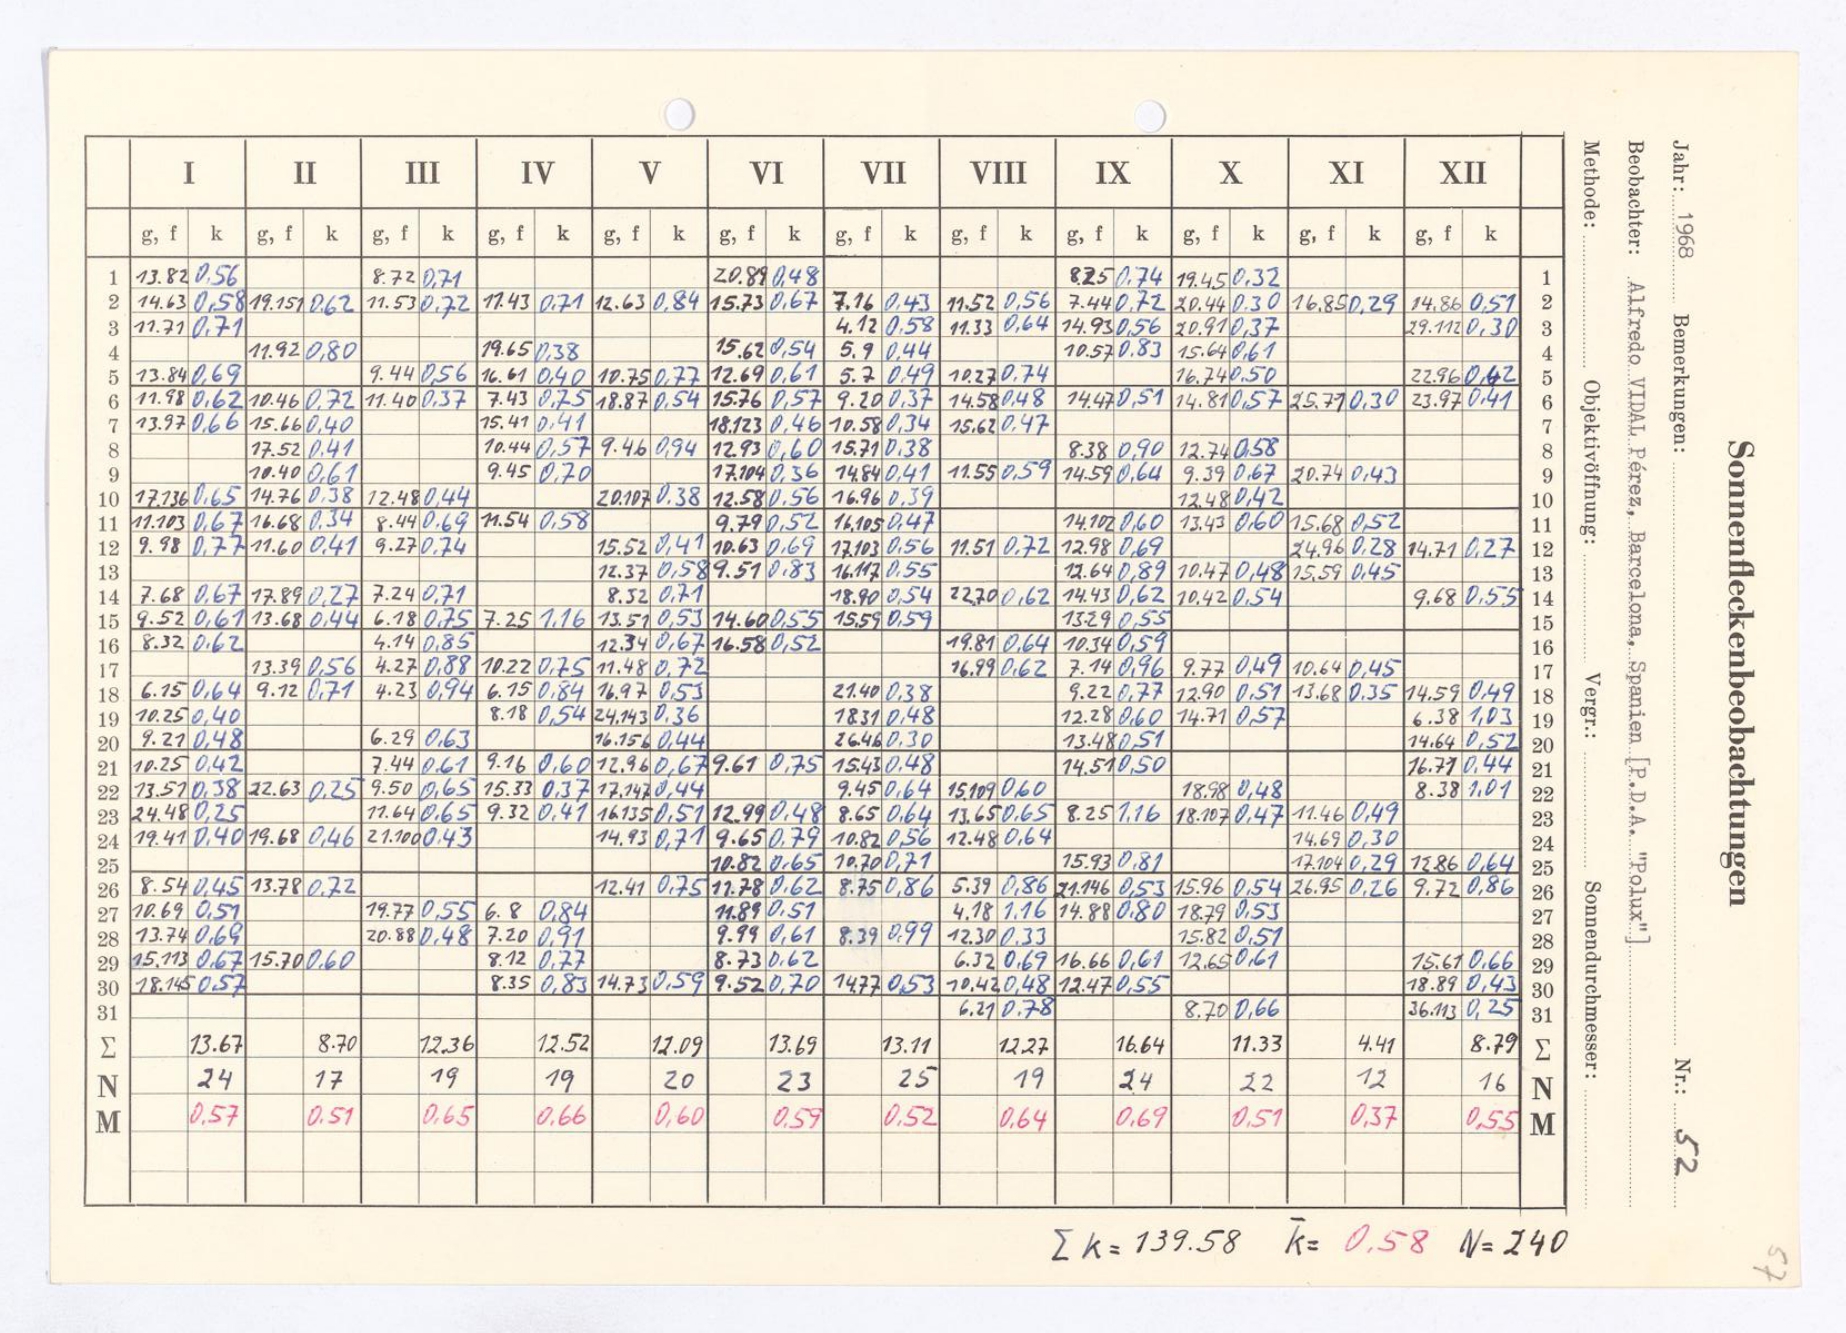 I II III IV V VI VII VIII IX X XI XII
g, f k g, f k g, f k g, f k g, f k g, f k g, f k g, f k g, f k g, f k g, f k g, f k
1 13.82 0,56 8.72 0,71 20.89 0,48 8.25 0,74 19.45 0,32 1
2 14.63 0,58 19.151 0,62 11.53 0,72 11.43 0,71 12.63 0,84 15.73 0,67 7.16 0,43 11.52 0,56 7.44 0,72 20.44 0,30 16.85 0,29 14.86 0,51 2
3 11.71 0,71 4.12 0,58 11.33 0,64 14.93 0,56 20.91 0,37 29.112 0,30 3
4 11.92 0,80 19.65 0,38 15.62 0,54 5.9 0,44 10.57 0,83 15.64 0,61 4
5 13.84 0,69 9.44 0,56 16.61 0,40 10.75 0,77 12.69 0,61 5.7 0,49 10.27 0,74 16.74 0,50 22.96 0,42 5
6 11.98 0,62 10.46 0,72 11.40 0,37 7.43 0,75 18.87 0,54 15.76 0,57 9.20 0,37 14.58 0,48 14.47 0,51 14.81 0,57 25.71 0,30 23.97 0,41 6
7 13.97 0,66 15.66 0,40 15.41 0,41 18.123 0,46 10.58 0,34 15.62 0,47 7
8 17.52 0,41 10.44 0,57 9.46 0,94 12.93 0,60 15.71 0,38 8.38 0,90 12.74 0,58 8
9 10.40 0,61 9.45 0,70 17.104 0,36 14.84 0,41 11.55 0,59 14.59 0,64 9.39 0,67 20.74 0,43 9
10 17.136 0,65 14.76 0,38 12.48 0,44 20.107 0,38 12.58 0,56 16.96 0,39 12.48 0,42 10
11 11.103 0,67 16.68 0,34 8.44 0,69 11.54 0,58 9.79 0,52 16.105 0,47 14.102 0,60 13.43 0,60 15.68 0,52 11
12 9.98 0,77 11.60 0,41 9.27 0,74 15.52 0,41 10.63 0,69 17.103 0,56 11.51 0,72 12.98 0,69 24.96 0,28 14.71 0,27 12
13 12.37 0,58 9.51 0,83 16.117 0,55 12.64 0,89 10.47 0,48 15.59 0,45 13
14 7.68 0,67 17.89 0,27 7.24 0,71 8.32 0,71 18.90 0,54 22.70 0,62 14.43 0,62 10.42 0,54 9.68 0,55 14
15 9.52 0,61 13.68 0,44 6.18 0,75 7.25 1,16 13.51 0,53 14.60 0,55 15.59 0,59 13.29 0,55 15
16 8.32 0,62 4.14 0,85 12.34 0,67 16.58 0,52 19.81 0,64 10.34 0,59 16
17 13.39 0,56 4.27 0,88 10.22 0,75 11.48 0,72 16.99 0,62 7.14 0,96 9.77 0,49 10.64 0,45 17
18 6.15 0,64 9.12 0,71 4.23 0,94 6.15 0,84 16.97 0,53 21.40 0,38 9.22 0,77 12.90 0,51 13.68 0,35 14.59 0,49 18
19 10.25 0,40 8.18 0,54 24.143 0,36 18.31 0,48 12.28 0,60 14.71 0,57 6.38 1,03 19
20 9.21 0,48 6.29 0,63 16.156 0,44 26.46 0,30 13.48 0,51 14.64 0,52 20
21 10.25 0,42 7.44 0,61 9.16 0,60 12.96 0,67 9.61 0,75 15.43 0,48 14.51 0,50 16.71 0,44 21
22 13.51 0,38 22.63 0,25 9.50 0,65 15.33 0,37 17.147 0,44 9.45 0,64 15.109 0,60 18.98 0,48 8.38 1,01 22
23 24.48 0,25 11.64 0,65 9.32 0,41 16.135 0,51 12.99 0,48 8.65 0,64 13.65 0,65 8.25 1,16 18.107 0,47 11.46 0,49 23
24 19.41 0,40 19.68 0,46 21.100 0,43 14.93 0,71 9.65 0,79 10.82 0,56 12.48 0,64 14.69 0,30 24
25 10.82 0,65 10.70 0,71 15.93 0,81 17.104 0,29 12.86 0,64 25
26 8.54 0,45 13.78 0,72 12.41 0,75 11.78 0,62 8.75 0,86 5.39 0,86 21.146 0,53 15.96 0,54 26.95 0,26 9.72 0,86 26
27 10.69 0,51 19.77 0,55 6.8 0,84 11.89 0,51 4.18 1,16 14.88 0,80 18.79 0,53 27
28 13.74 0,69 20.88 0,48 7.20 0,91 9.99 0,61 8.39 0,99 12.30 0,33 15.82 0,51 28
29 15.113 0,67 15.70 0,60 8.12 0,77 8.73 0,62 6.32 0,69 16.66 0,61 12.65 0,61 15.61 0,66 29
30 18.145 0,57 8.35 0,83 14.73 0,59 9.52 0,70 14.77 0,53 10.42 0,48 12.47 0,55 18.89 0,43 30
31 6.21 0,78 8.70 0,66 36.113 0,25 31
Σ 13.67 8.70 12.36 12.52 12.09 13.69 13.11 12.27 16.64 11.33 4.41 8.79 Σ
N 24 17 19 19 20 23 25 19 24 22 12 16 N
M 0,57 0,51 0,65 0,66 0,60 0,59 0,52 0,64 0,69 0,51 0,37 0,55 M
Σ k = 139.58 k̄ = 0,58 N = 240
Sonnenfleckenbeobachtungen
Jahr: 1968 Bemerkungen: Nr.: 52
Beobachter: Alfredo VIDAL Pérez, Barcelona, Spanien [P.D.A. "Polux"]
Methode: Objektivöffnung: Vergr.: Sonnendurchmesser:
57